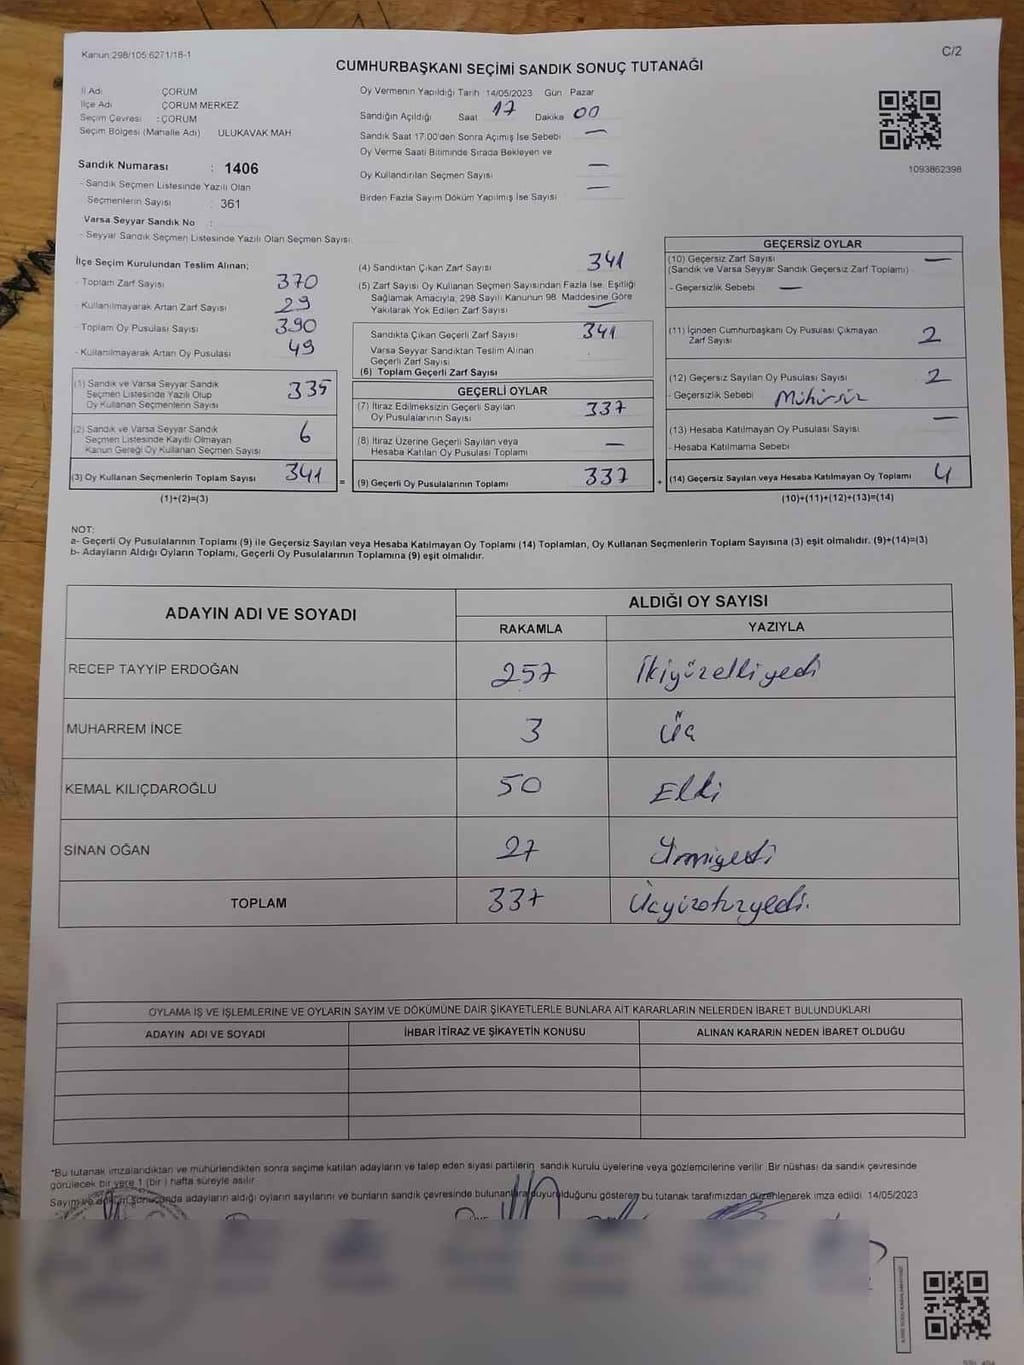 Kanun:298/105:6271/18-1
C/2
CUMHURBAŞKANI SEÇİMİ SANDIK SONUÇ TUTANAĞI
İl Adı : ÇORUM
İlçe Adı : ÇORUM MERKEZ
Seçim Çevresi : ÇORUM
Seçim Bölgesi (Mahalle Adı) ULUKAVAK MAH
Sandık Numarası : 1406
- Sandık Seçmen Listesinde Yazılı Olan
Seçmenlerin Sayısı : 361
Varsa Seyyar Sandık No :
- Seyyar Sandık Seçmen Listesinde Yazılı Olan Seçmen Sayısı:
Oy Vermenin Yapıldığı Tarih 14/05/2023 Gün Pazar
Sandığın Açıldığı Saat 17 Dakika 00
Sandık Saat 17:00'den Sonra Açılmış İse Sebebi —
Oy Verme Saati Bitiminde Sırada Bekleyen ve
Oy Kullandırılan Seçmen Sayısı —
Birden Fazla Sayım Döküm Yapılmış İse Sayısı —
1093862398
İlçe Seçim Kurulundan Teslim Alınan;
- Toplam Zarf Sayısı 370
- Kullanılmayarak Artan Zarf Sayısı 29
- Toplam Oy Pusulası Sayısı 390
- Kullanılmayarak Artan Oy Pusulası 49
(1) Sandık ve Varsa Seyyar Sandık
Seçmen Listesinde Yazılı Olup
Oy Kullanan Seçmenlerin Sayısı 335
(2) Sandık ve Varsa Seyyar Sandık
Seçmen Listesinde Kayıtlı Olmayan
Kanun Gereği Oy Kullanan Seçmen Sayısı 6
(3) Oy Kullanan Seçmenlerin Toplam Sayısı 341
(1)+(2)=(3)
(4) Sandıktan Çıkan Zarf Sayısı 341
(5) Zarf Sayısı Oy Kullanan Seçmen Sayısından Fazla İse, Eşitliği
Sağlamak Amacıyla, 298 Sayılı Kanunun 98. Maddesine Göre
Yakılarak Yok Edilen Zarf Sayısı —
Sandıkta Çıkan Geçerli Zarf Sayısı 341
Varsa Seyyar Sandıktan Teslim Alınan
Geçerli Zarf Sayısı
(6) Toplam Geçerli Zarf Sayısı
GEÇERLİ OYLAR
(7) İtiraz Edilmeksizin Geçerli Sayılan
Oy Pusulalarının Sayısı 337
(8) İtiraz Üzerine Geçerli Sayılan veya
Hesaba Katılan Oy Pusulası Toplamı —
= (9) Geçerli Oy Pusulalarının Toplamı 337
GEÇERSİZ OYLAR
(10) Geçersiz Zarf Sayısı —
(Sandık ve Varsa Seyyar Sandık Geçersiz Zarf Toplamı)
- Geçersizlik Sebebi —
(11) İçinden Cumhurbaşkanı Oy Pusulası Çıkmayan
Zarf Sayısı 2
(12) Geçersiz Sayılan Oy Pusulası Sayısı 2
- Geçersizlik Sebebi Mühürsüz
(13) Hesaba Katılmayan Oy Pusulası Sayısı —
- Hesaba Katılmama Sebebi
+ (14) Geçersiz Sayılan veya Hesaba Katılmayan Oy Toplamı 4
(10)+(11)+(12)+(13)=(14)
NOT:
a- Geçerli Oy Pusulalarının Toplamı (9) ile Geçersiz Sayılan veya Hesaba Katılmayan Oy Toplamı (14) Toplamları, Oy Kullanan Seçmenlerin Toplam Sayısına (3) eşit olmalıdır. (9)+(14)=(3)
b- Adayların Aldığı Oyların Toplamı, Geçerli Oy Pusulalarının Toplamına (9) eşit olmalıdır.
ADAYIN ADI VE SOYADI ALDIĞI OY SAYISI
RAKAMLA YAZIYLA
RECEP TAYYİP ERDOĞAN 257 İkiyüzelliyedi
MUHARREM İNCE 3 Üç
KEMAL KILIÇDAROĞLU 50 Elli
SİNAN OĞAN 27 Yirmiyedi
TOPLAM 337 Üçyüzotuzyedi.
OYLAMA İŞ VE İŞLEMLERİNE VE OYLARIN SAYIM VE DÖKÜMÜNE DAİR ŞİKAYETLERLE BUNLARA AİT KARARLARIN NELERDEN İBARET BULUNDUKLARI
ADAYIN ADI VE SOYADI İHBAR İTİRAZ VE ŞİKAYETİN KONUSU ALINAN KARARIN NEDEN İBARET OLDUĞU
*Bu tutanak imzalandıktan ve mühürlendikten sonra seçime katılan adayların ve talep eden siyasi partilerin sandık kurulu üyelerine veya gözlemcilerine verilir. Bir nüshası da sandık çevresinde
görülecek bir yere 1 (bir) hafta süreyle asılır.
Sayım ve döküm sonucunda adayların aldığı oyların sayılarını ve bunların sandık çevresinde bulunanlara duyurulduğunu gösteren bu tutanak tarafımızdan düzenlenerek imza edildi. 14/05/2023